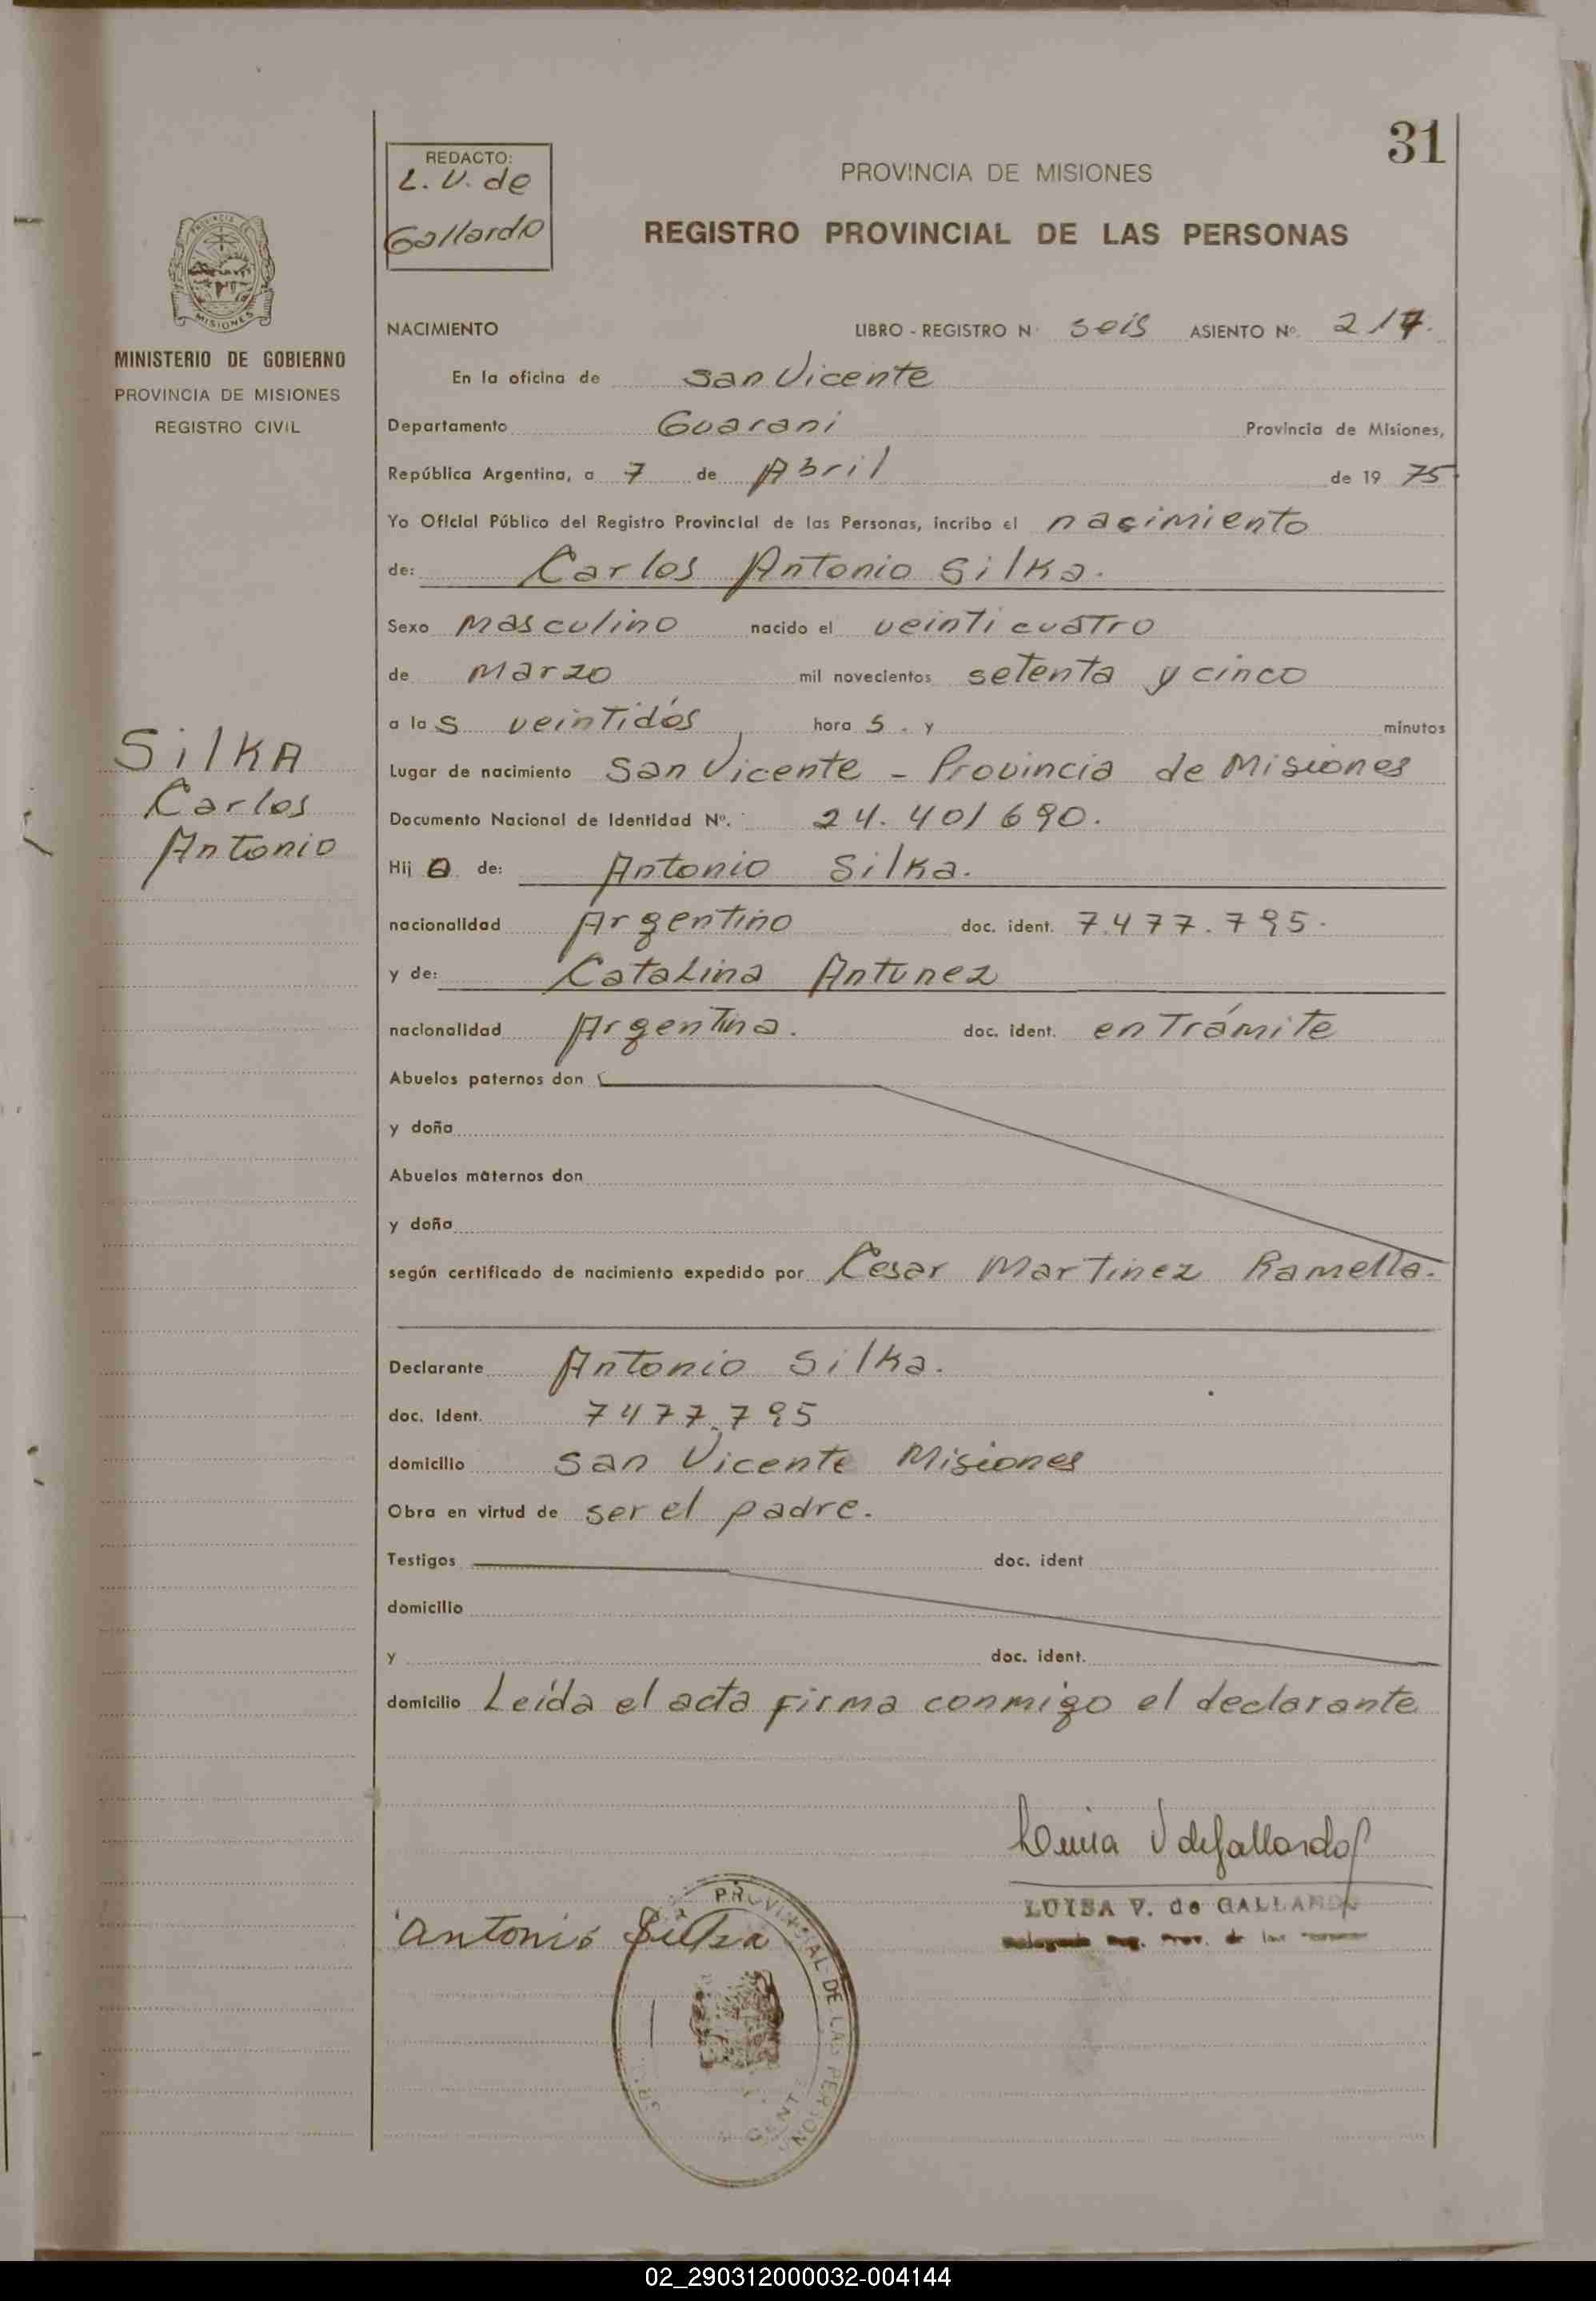 31
REDACTO:
L. V. de
Gallardo
PROVINCIA DE MISIONES
REGISTRO PROVINCIAL DE LAS PERSONAS
MISIONES
MINISTERIO DE GOBIERNO
PROVINCIA DE MISIONES
REGISTRO CIVIL
SilKA
Carlos
Antonio
NACIMIENTO LIBRO - REGISTRO N° seis ASIENTO Nº. 217.
En la oficina de San Vicente
Departamento Guarani Provincia de Misiones,
República Argentina, a 7 de Abril de 19 75
Yo Oficial Público del Registro Provincial de las Personas, incribo el nacimiento
de: Carlos Antonio Silka.
Sexo Masculino nacido el veinticuatro
de Marzo mil novecientos setenta y cinco
a las veintidós horas. y minutos
Lugar de nacimiento San Vicente - Provincia de Misiones
Documento Nacional de Identidad Nº. 24.401690.
Hijo de: Antonio Silka.
nacionalidad Argentino doc. ident. 7.477.795.
y de: Catalina Antunez
nacionalidad Argentina. doc. ident. en Trámite
Abuelos paternos don
y doña
Abuelos maternos don
y doña
según certificado de nacimiento expedido por Cesar Martinez Ramella.
Declarante Antonio Silka.
doc. Ident. 7477.795
domicilio San Vicente Misiones
Obra en virtud de ser el padre.
Testigos doc. ident
domicilio
y doc. ident.
domicilio Leída el acta firma conmigo el declarante
Luisa V de Gallardo
LUISA V. de GALLARDO
Antonio Silka
PROVINCIAL DE LAS PERSON
02_290312000032-004144